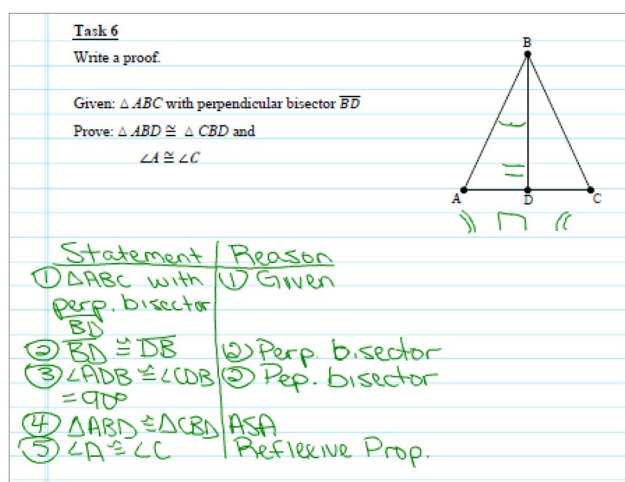 Task 6
Write a proof.
B
Given: △ ABC with perpendicular bisector BD
Prove: △ ABD ≅ △ CBD and
∠A ≅ ∠C
A D C
Statement | Reason
① △ABC with | ① Given
perp. bisector
BD
② BD ≅ DB | ② Perp. bisector
③ ∠ADB ≅ ∠CDB | ③ Pep. bisector
= 90°
④ △ABD ≅ △CBD | ASA
⑤ ∠A ≅ ∠C | Reflexive Prop.